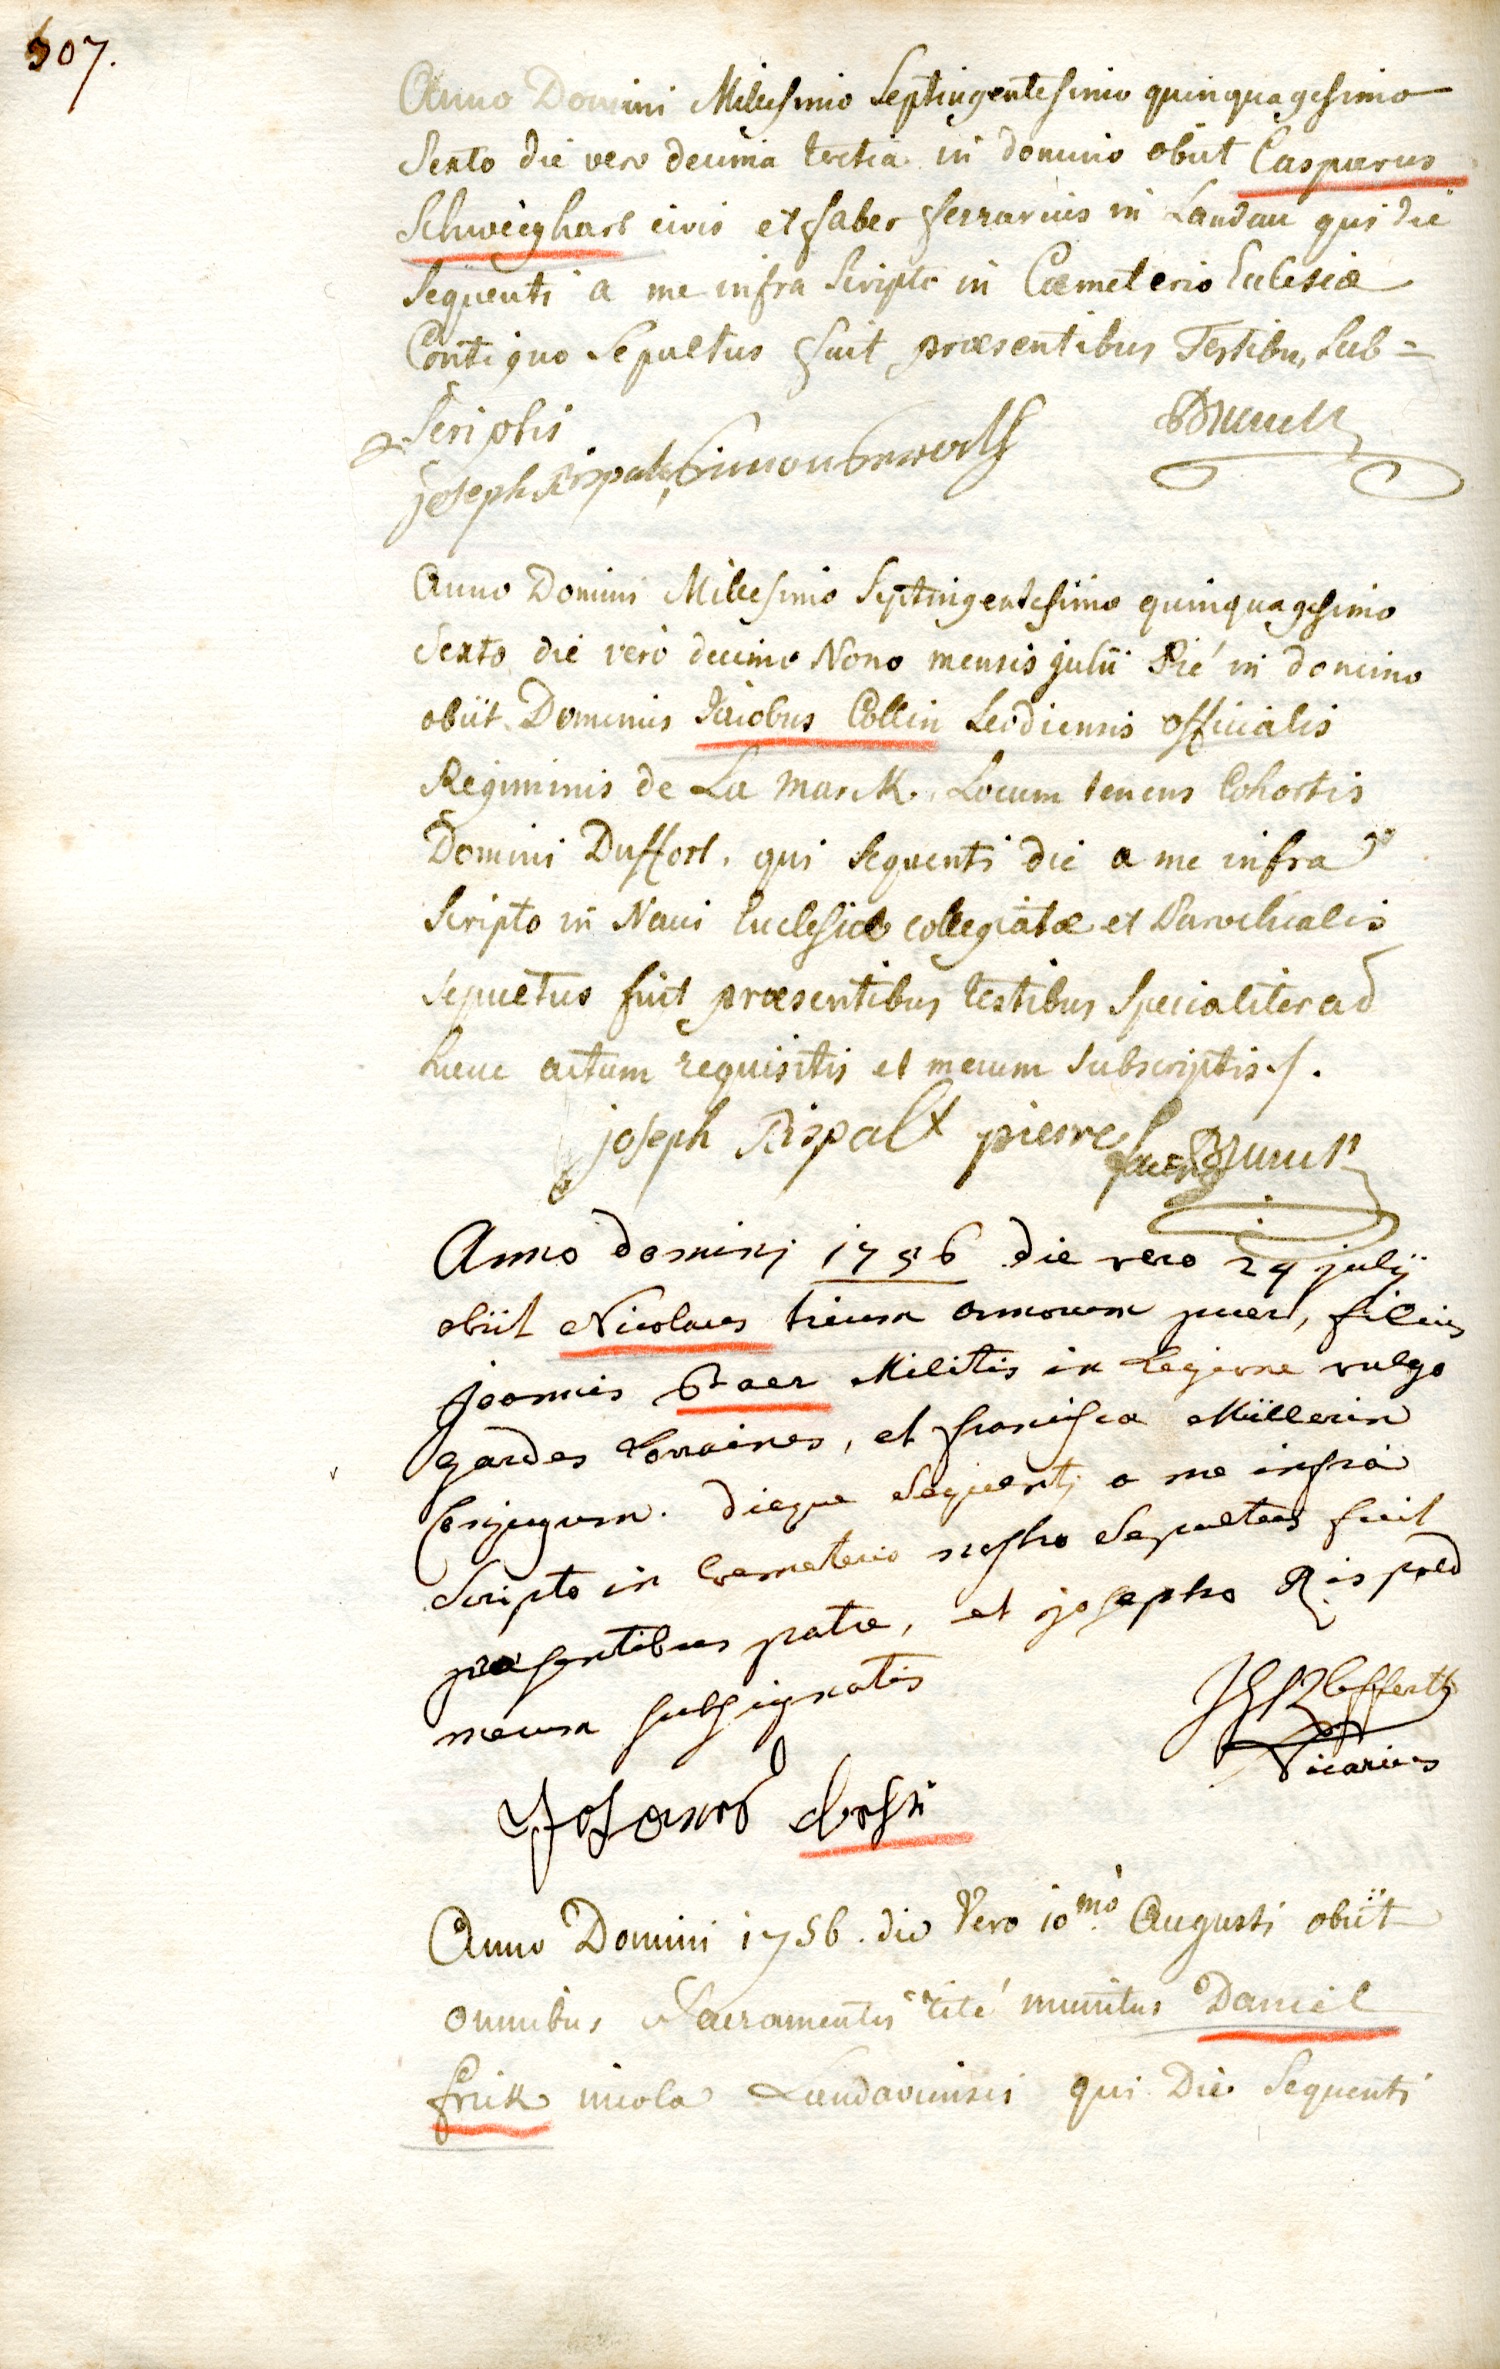 507.
Anno Domini Millesimo Septingentesimo quinquagesimo
Sexto die vero decima tertia in domino obiit Casparus
Schweighart civis et faber ferrarius in Landau qui die
Sequenti a me infra Scripto in Cœmeterio Ecclesiæ
Contiguo Sepultus fuit præsentibus Testibus Sub=
Scriptis
Joseph Rispalt, Simon
Anno Domini Millesimo Septingentesimo quinquagesimo
Sexto die verò decimo Nono mensis julii Pié in domino
obiit Dominus Jacobus Collin Leodiensis officialis
Regiminis de La Marck Locum tenens Cohortis
Domini Duffort. qui Sequenti die a me infra
Scripto in Navi Ecclesiæ collegiatæ et Parochialis
sepultus fuit præsentibus testibus Specialiter ad
hunc actum requisitis et mecum Subscriptis ./.
joseph Rispalt pierre
Anno dominj 1756 die vero 29 julij
obiit Nicolaus trium annorum puer, filius
Joannis Baer Militis in Legione vulgo
gardes Lorraines, et francisca Müllerin
Conjugum. dieque Sequentj a me infrà
Scripto in Coemeterio nostro Sepultus fuit
præsentibus patre, et josepho Rispald
mecum subsignatis
Vicarius
Anno Domini 1756. die Vero 10mò Augusti obiit
omnibus Sacramentis rité munitus Daniel
frick incola Landaviensis qui Die Sequenti